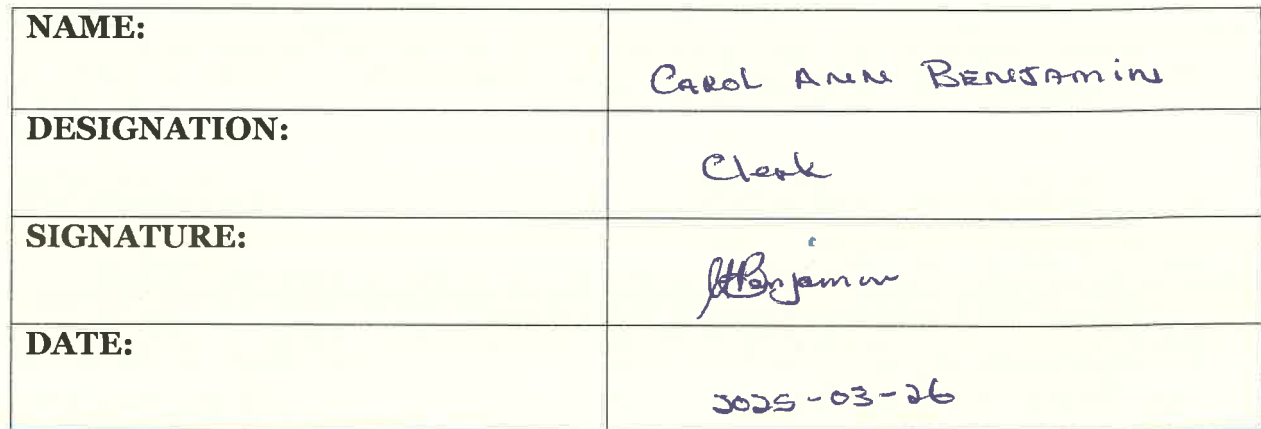 NAME:
CAROL ANN BENJAMIN
DESIGNATION:
Clerk
SIGNATURE:
CABenjamin
DATE:
2025-03-26